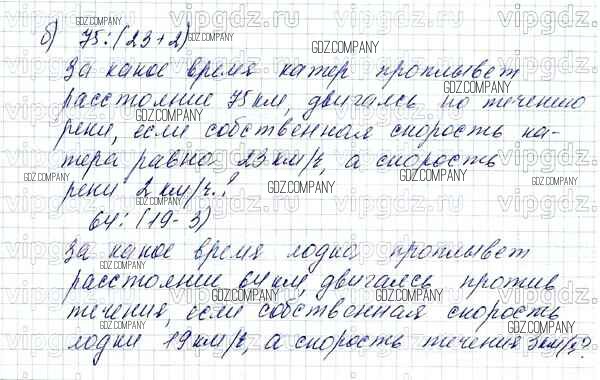 б) 75:(23+2)
За какое время катер проплывет
расстояние 75 км, двигаясь по течению
реки, если собственная скорость ка-
тера равна 23 км/ч, а скорость
реки 2 км/ч.?
64:(19-3)
За какое время лодка проплывет
расстоянии 64 км, двигаясь против
течения, если собственная скорость
лодки 19 км/ч, а скорость течения 3 км/ч?